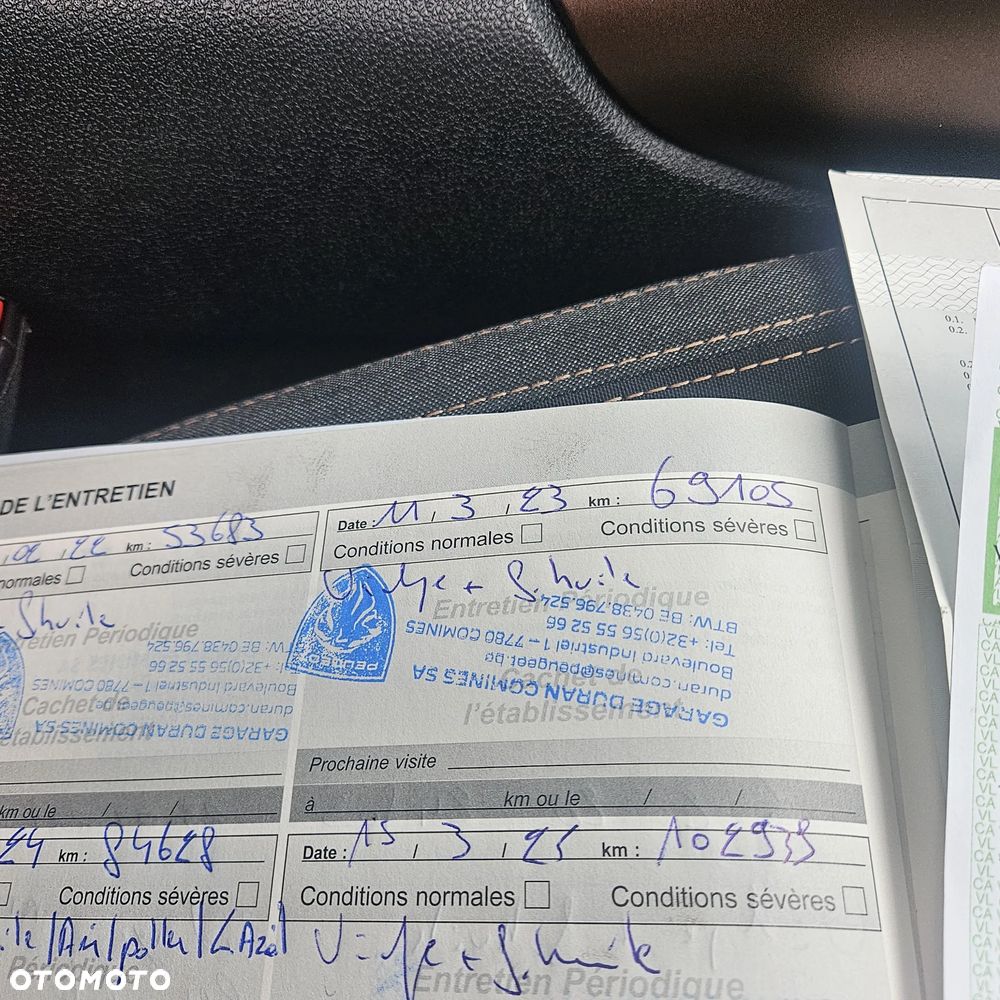 DE L'ENTRETIEN
02 / 22 km : 53683
normales Conditions sévères
+ G.huile
Entretien Périodique
BTW: BE 0438.796.524
Tel: +32(0)56 55 52 66
Boulevard Industriel 1 – 7780 COMINES
duran.comines@peugeot.be
GARAGE DURAN COMINES SA
Cachet de
l'établissement
km ou le / /
24 km : 84628
Conditions sévères
Date : 11 / 3 / 23 km : 69105
Conditions normales Conditions sévères
Vidange + G.huile
Entretien Périodique
BTW: BE 0438.796.524
Tel: +32(0)56 55 52 66
Boulevard Industriel 1 – 7780 COMINES
duran.comines@peugeot.be
GARAGE DURAN COMINES SA
PEUGEOT
Cachet de
l'établissement
Prochaine visite
à km ou le / /
Date : 15 / 3 / 25 km : 102939
Conditions normales Conditions sévères
Vidange + G.huile
Entretien Périodique
0.1.
0.2.
OTOMOTO